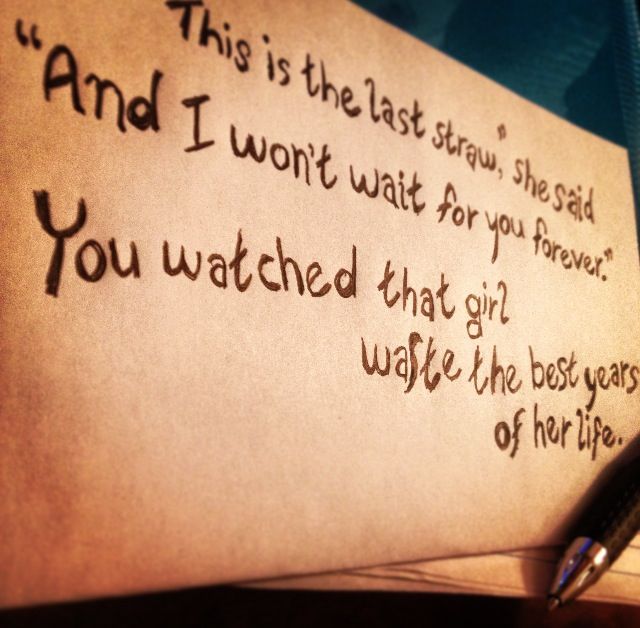 This is the last straw," she said
"And I won't wait for you forever."
You watched that girl
waste the best years
of her life.